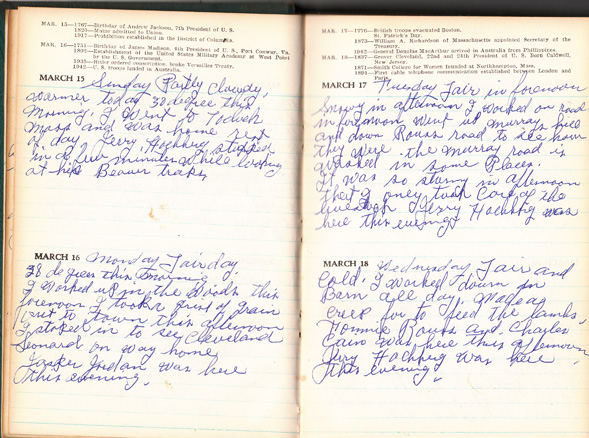 MAR. 15—1767—Birthday of Andrew Jackson, 7th President of U. S.
1820—Maine admitted to Union.
1917—Prohibition established in the District of Columbia.
MAR. 16—1751—Birthday of James Madison, 4th President of U. S., Port Conway, Va.
1802—Establishment of the United States Military Academy at West Point
by the U. S. Government.
1935—Hitler ordered conscription, broke Versailles Treaty.
1942—U. S. troops landed in Australia.
MARCH 15 Sunday Partly Cloudy,
warmer today 30 degree this
Morning, I went to
Mass and was home rest
of day. Jerry Hochbrig stopped
in a few minutes while looking
at his Beaver traps
MARCH 16 Monday Fair day.
28 degrees this morning
I worked up in the Woods this
forenoon I took a grist of grain
out to town this afternoon
I stoped in to see Cleveland
Leonard on way home,
Jordan was here
this evening.
MAR. 17—1776—British troops evacuated Boston.
St. Patrick's Day.
1873—William A. Richardson of Massachusetts appointed Secretary of the
Treasury.
1942—General Douglas MacArthur arrived in Australia from Phillippines.
MAR. 18—1837—Grover Cleveland, 22nd and 24th President of U. S. Born Caldwell,
New Jersey.
1871—Smith College for Women founded at Northhampton, Mass.
1891—First cable telephone communication established between London and
Paris.
MARCH 17 Tuesday Fair in forenoon
Snowy in afternoon I worked on road
in forenoon went up Murray hill
and down Rouss road to see how
they were. the Murray road is
in some Places.
It was so stormy in afternoon
that I only took care of the
Jerry Hochbrig was
here this evening
MARCH 18 Wednesday Fair and
Cold. I worked down in
Barn all day. Made a
creep for to feed the lambs,
and Charles
Cain was here this afternoon
Jerry Hochbrig was here
this evening.